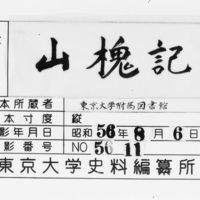 山槐記
本所蔵者 東京大学附属図書館
本寸度 縦
影年月日 昭和56年8月6日
影番号 NO 56 11
東京大学史料編纂所